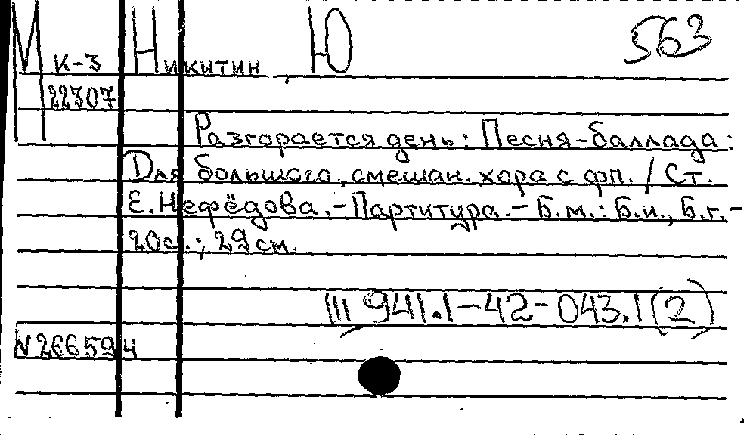 М К-3 Никитин, Ю 563
22307
Разгорается день: Песня-баллада:
Для большого, смешан. хора с фп. / Ст.
Е. Нефёдова. - Партитура. - Б.м.: Б.и., Б.г. -
20с.; 29см.
Ш 941.1-42-043.1(2)
N 266594